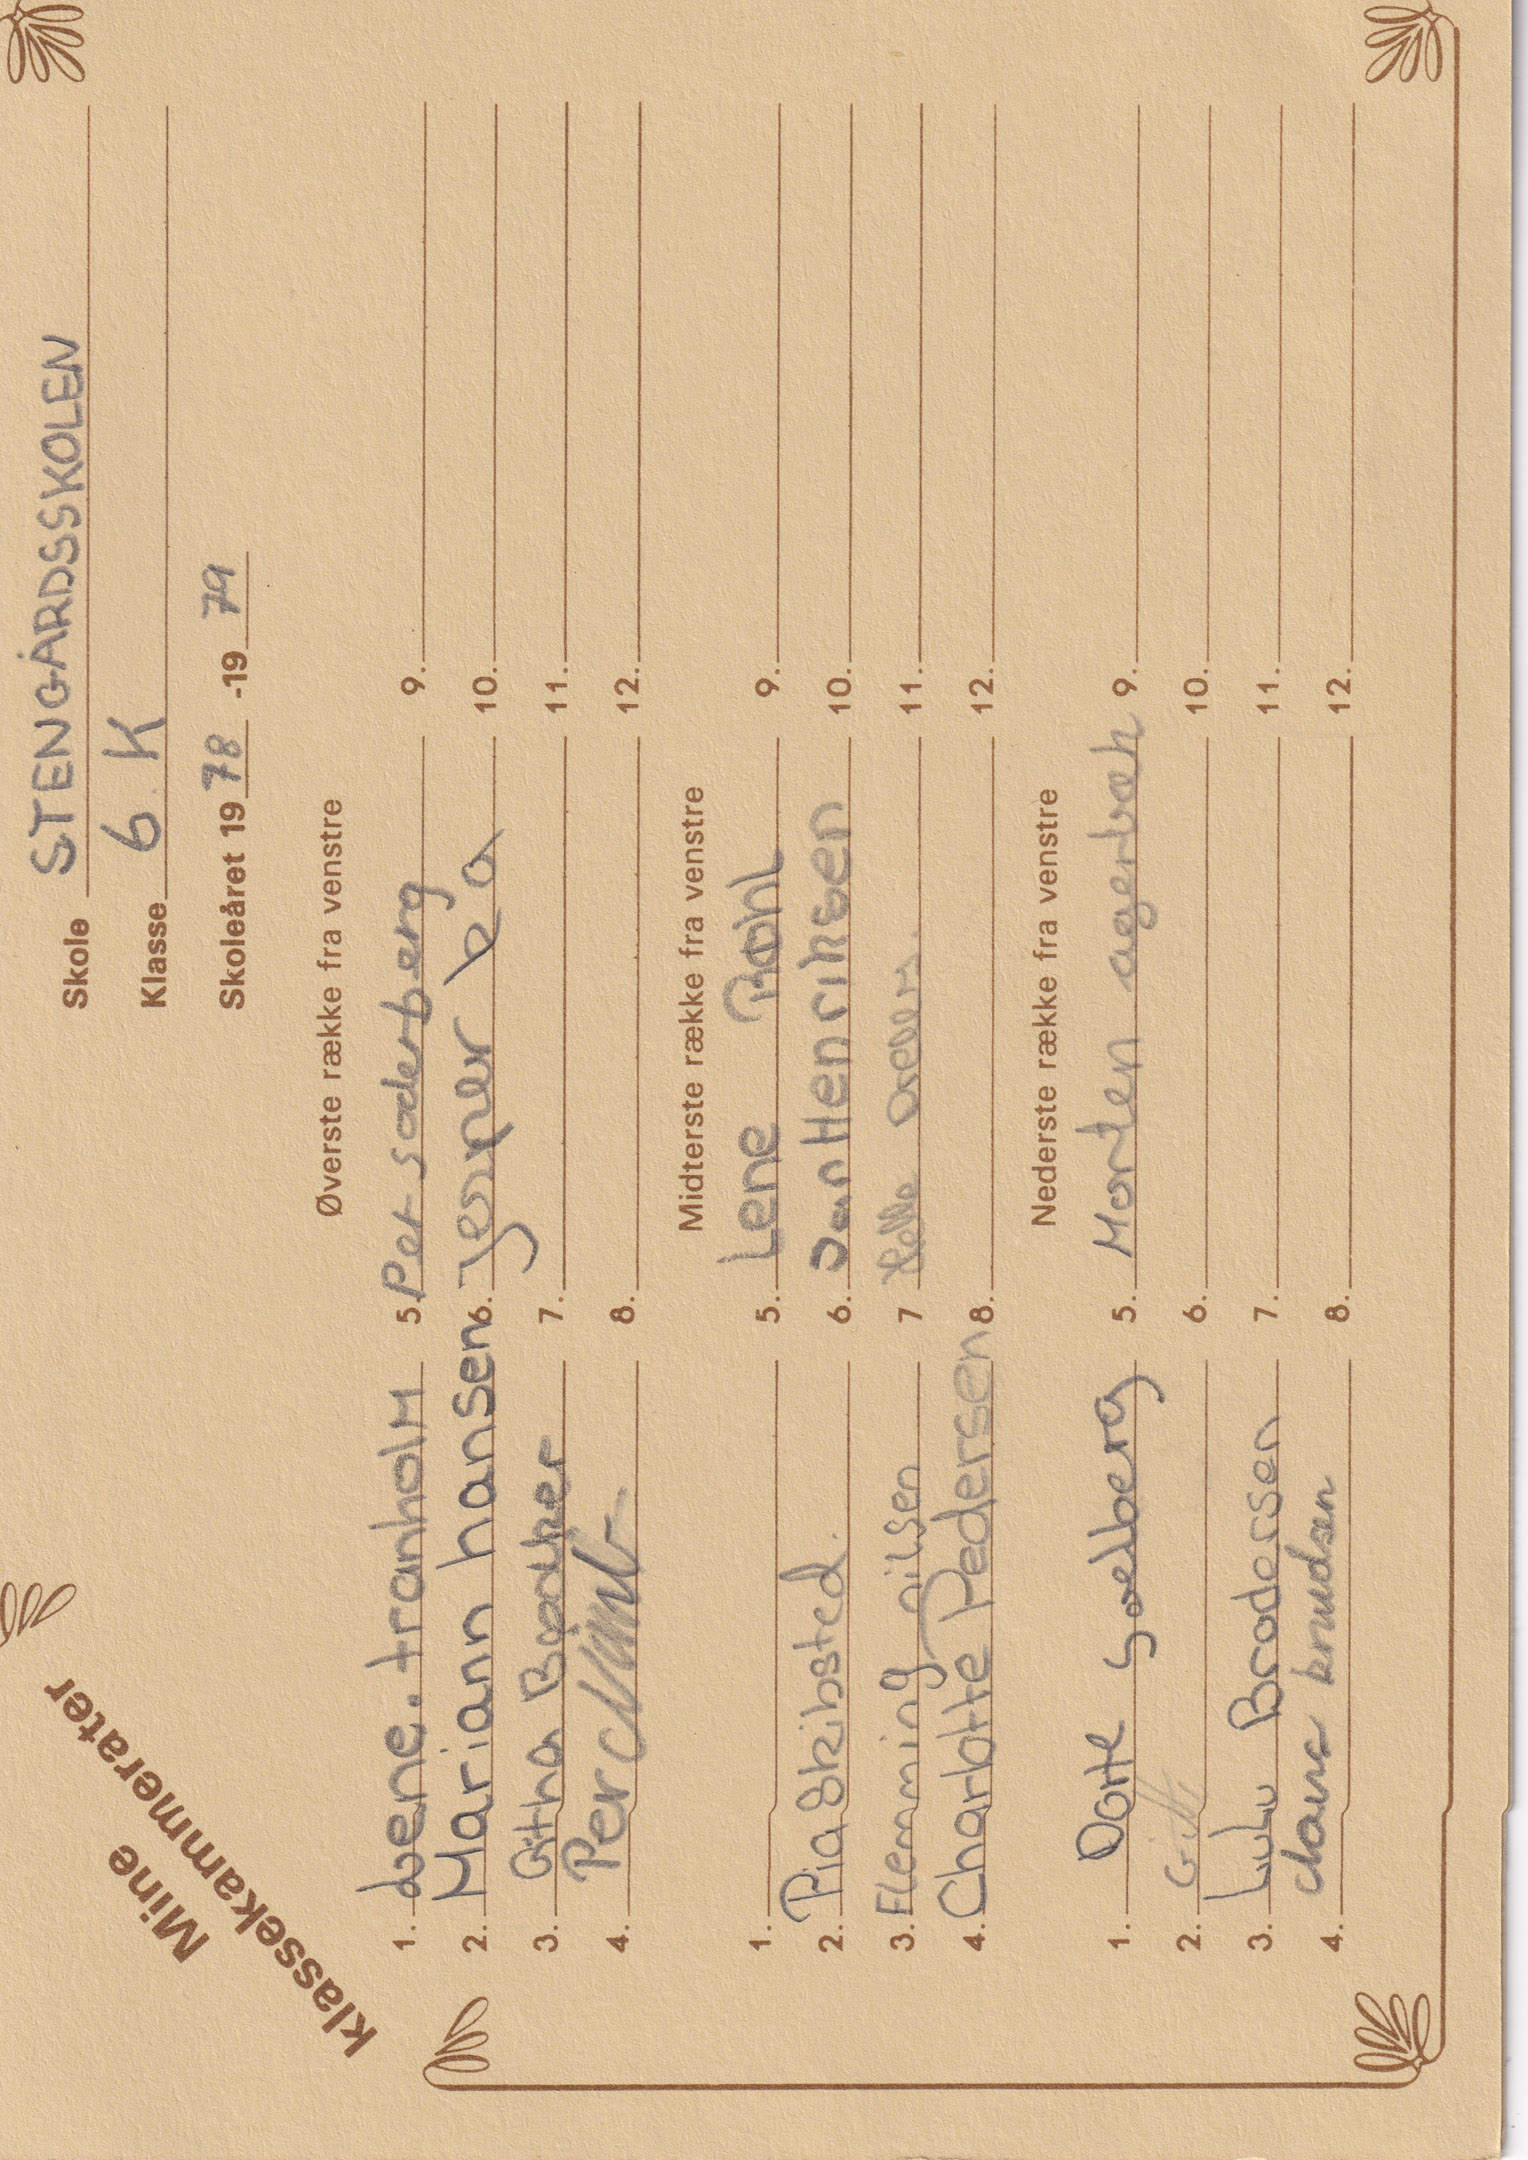 Mine
klassekammerater
Skole STENGÅRDSSKOLEN
Klasse 6. K
Skoleåret 1978 -1979
Øverste række fra venstre
1. Lene. tranholm 5. Per soderberg 9.
2. Mariann hansen 6. Jesper 10.
3. Githa 7. 11.
4. Per 8. 12.
Midterste række fra venstre
1. 5. Lene 9.
2. Pia Skibsted. 6. Jan Henriksen 10.
3. Flemming nilsen 7 Helle 11.
4. Charlotte Pedersen 8. 12.
Nederste række fra venstre
1. Dorte 5. Morten agerbæk 9.
2. 6. 10.
3. Lulu Brodersen 7. 11.
4. claus knudsen 8. 12.